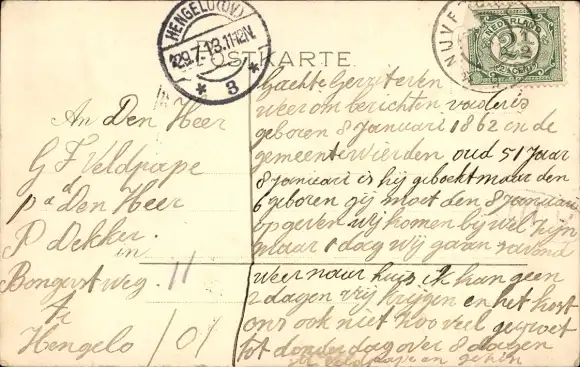 HENGELO (OV)
29.7.13.11-12N.
* 8 *
POSTKARTE.
NEDERLAND
2½
2½
An Den Heer
G F Veldpape
p a den Heer
P Dekker.
in
Bongastweg. 11
Te
Hengelo /01
Gachte Gerziteren
weer om berichten vader is
geboren 8 Januari 1862 en de
gemeente Wierden oud 51 Jaar
8 Januari is hij geboekt maar den
6 geboren gij moet den 8 Januari
opgeven wij komen bij wel zijn
maar 1 dag wij gaan savond
weer naar huis ik kan geen
2 dagen vrij krijgen en het kost
ons ook niet zoo veel gegroet
tot donderdag over 8 dagen